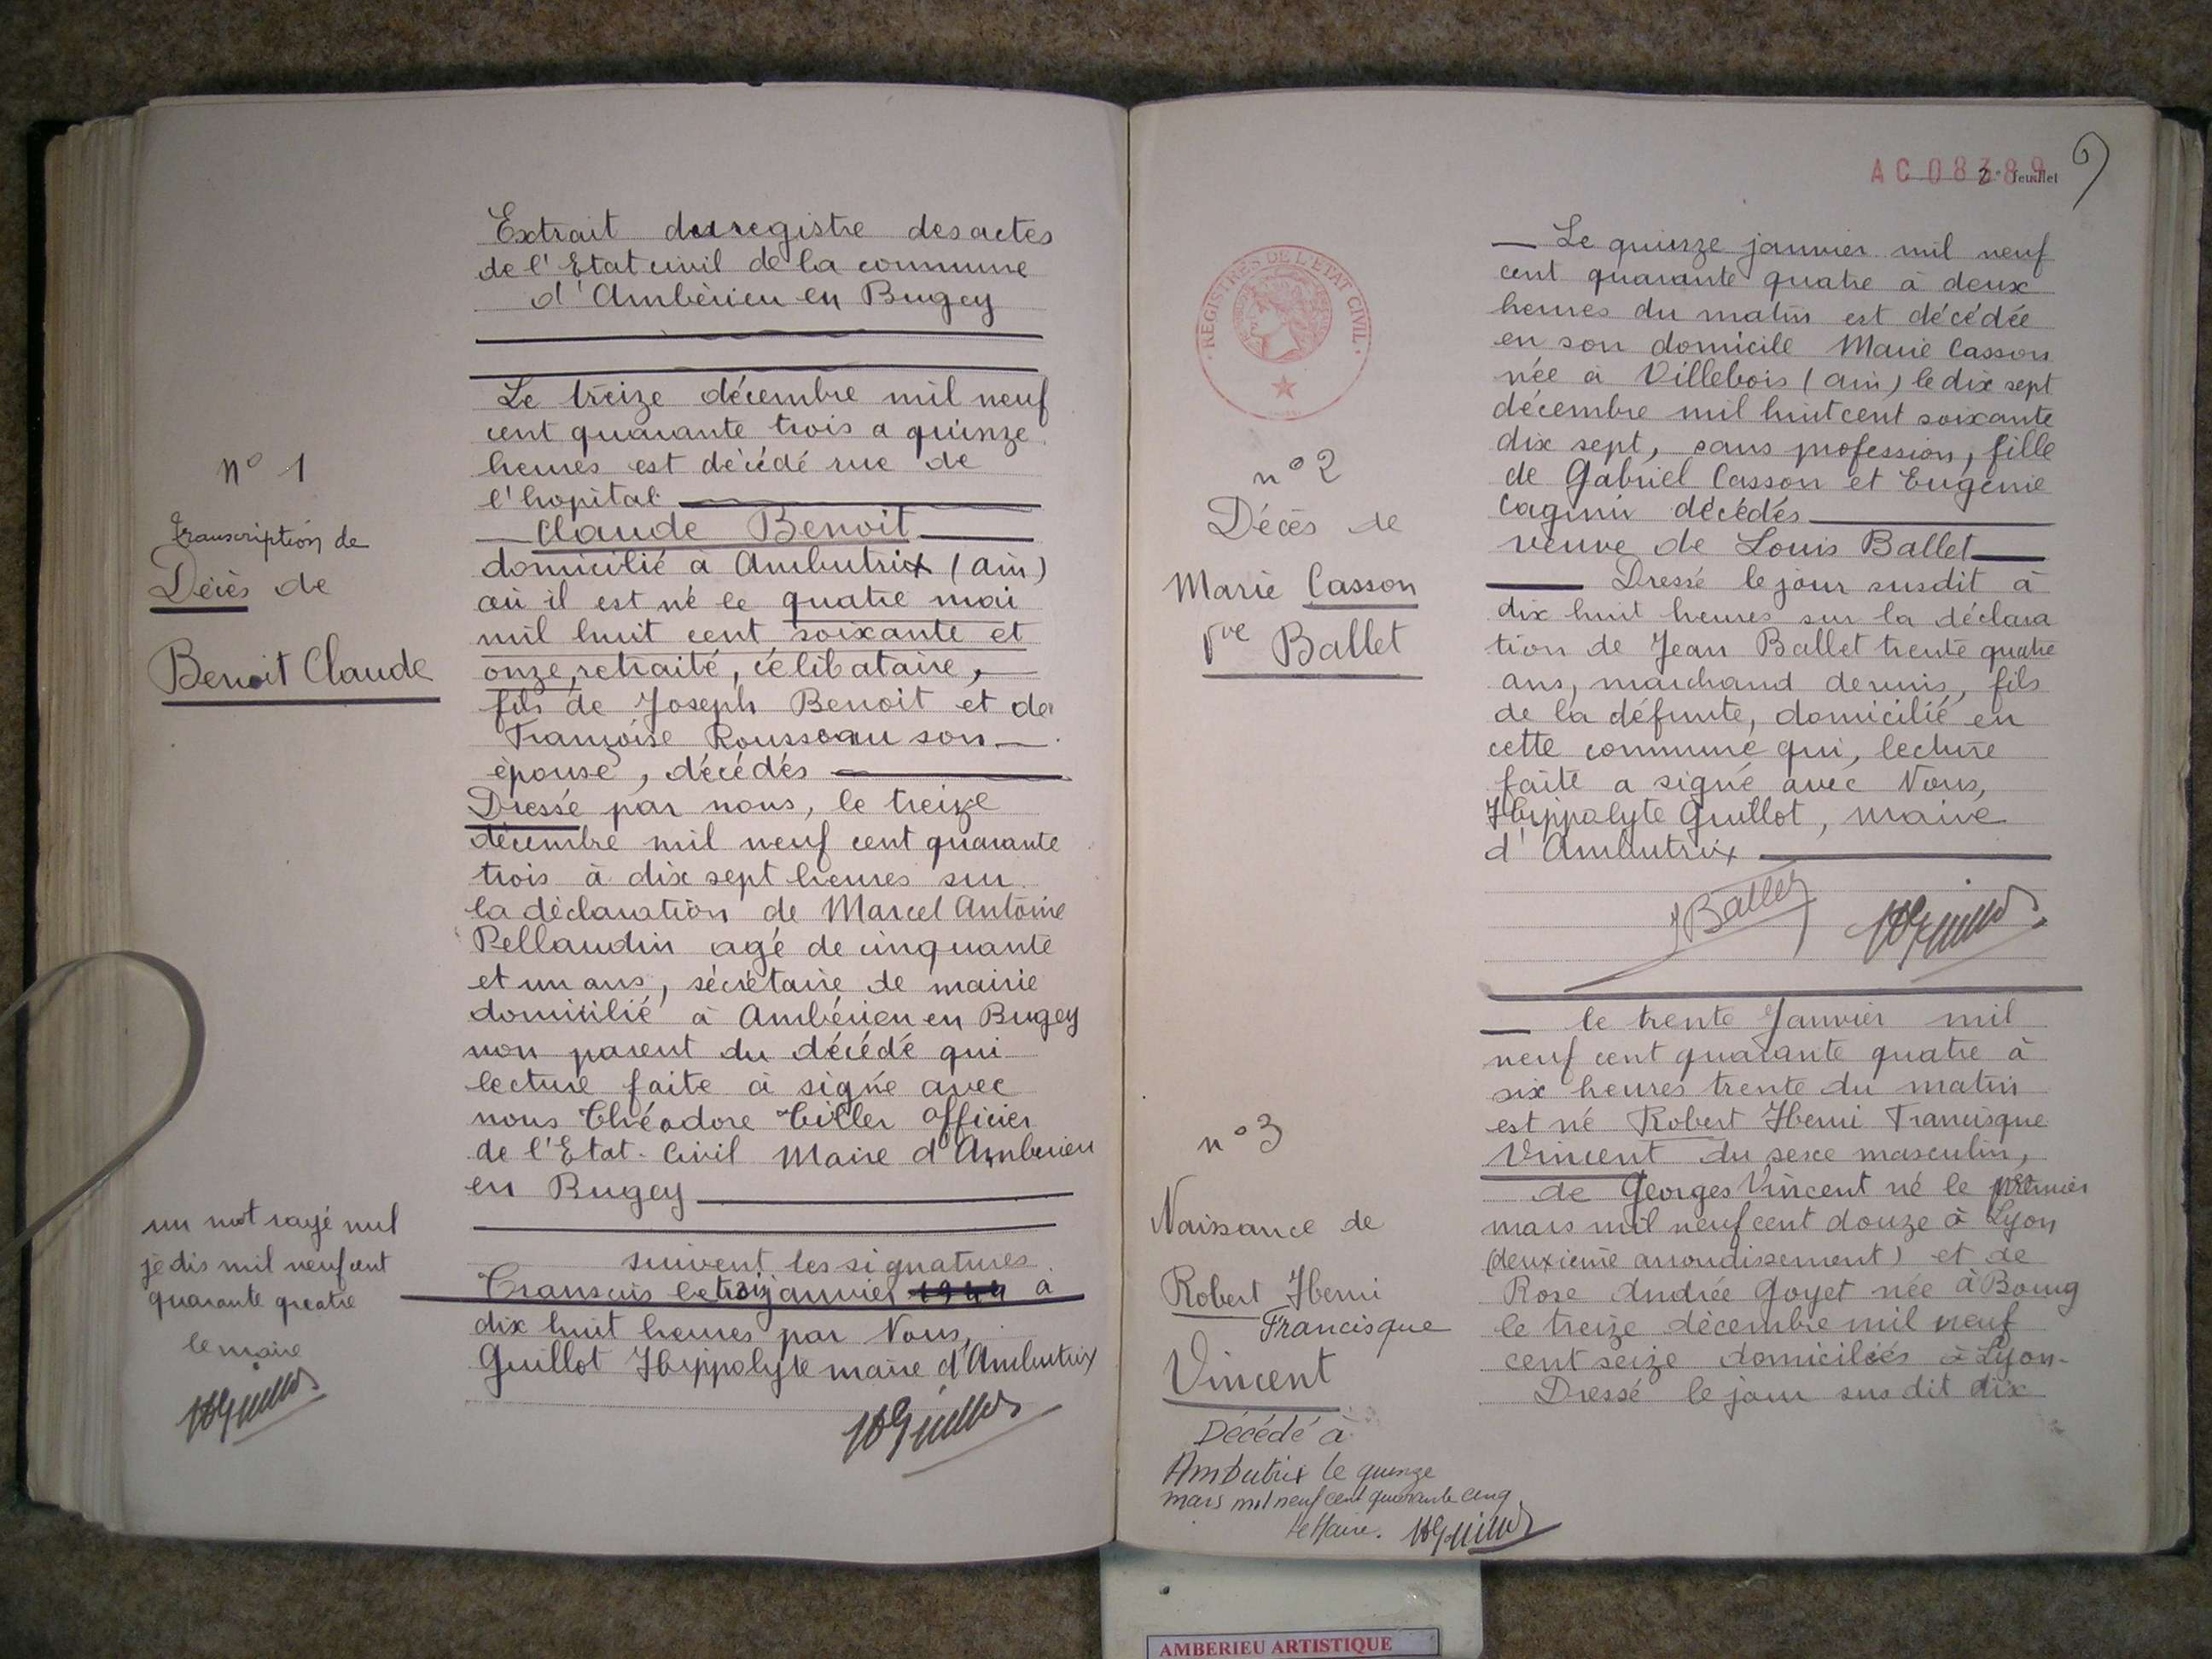 Extrait du registre des actes
de l'Etat civil de la commune
d'Ambèrieu en Bugey
n° 1
transcription de
Décès de
Benoit Claude
Le treize décembre mil neuf
cent quarante trois a quinze
heures est décédé rue de
l'hopital
Claude Benoit
domicilié à Ambutrix (ain)
où il est né le quatre mai
mil huit cent soixante et
onze, retraité, célibataire,
fils de Joseph Benoit et de
Françoise Rousseau son
épouse, décédés
Dressé par nous, le treize
décembre mil neuf cent quarante
trois à dix sept heures sur
la déclaration de Marcel Antoine
Pellaudin agé de cinquante
et un ans, sécrétaire de mairie
domicilié à Ambérieu en Bugey
non parent du décédé qui
lecture faite à signé avec
nous Théodore Tiller officier
de l'Etat-Civil Maire d'Amberieu
en Bugey
suivent les signatures
Transcris le trois janvier 1944 a
dix huit heures par Nous,
Guillot Hippolyte maire d'Ambutrix
HGuillot
un mot rayé nul
je dis mil neuf cent
quarante quatre
le maire
HGuillot
AC 08389
2e feuillet
REGISTRES DE L'ETAT CIVIL
n° 2
Décès de
Marie Casson
Vve Ballet
Le quinze janvier mil neuf
cent quarante quatre à deux
heures du matin est décédée
en son domicile Marie Casson
née à Villebois (ain) le dix sept
décembre mil huit cent soixante
dix sept, sans profession, fille
de Gabriel Casson et Eugénie
Cagnin décédés
veuve de Louis Ballet
Dressé le jour susdit à
dix huit heures sur la déclara
tion de Jean Ballet trente quatre
ans, marchand de vins, fils
de la défunte, domicilié en
cette commune qui, lecture
faite a signé avec Nous,
Hippolyte Guillot, maire
d'Ambutrix
JBallet HGuillot
n° 3
Naissance de
Robert Henri
Francisque
Vincent
Décédé à
Ambutrix le quinze
mars mil neuf cent quarante cinq
le Maire. HGuillot
le trente Janvier mil
neuf cent quarante quatre à
six heures trente du matin
est né Robert Henri Francisque
Vincent du sexe masculin,
de Georges Vincent né le premier
mars mil neuf cent douze à Lyon
(deuxieme arrondissement) et de
Rose Andrée Goyet née à Bourg
le treize décembre mil neuf
cent seize domiciliés à Lyon-
Dressé le jour susdit dix
AMBERIEU ARTISTIQUE